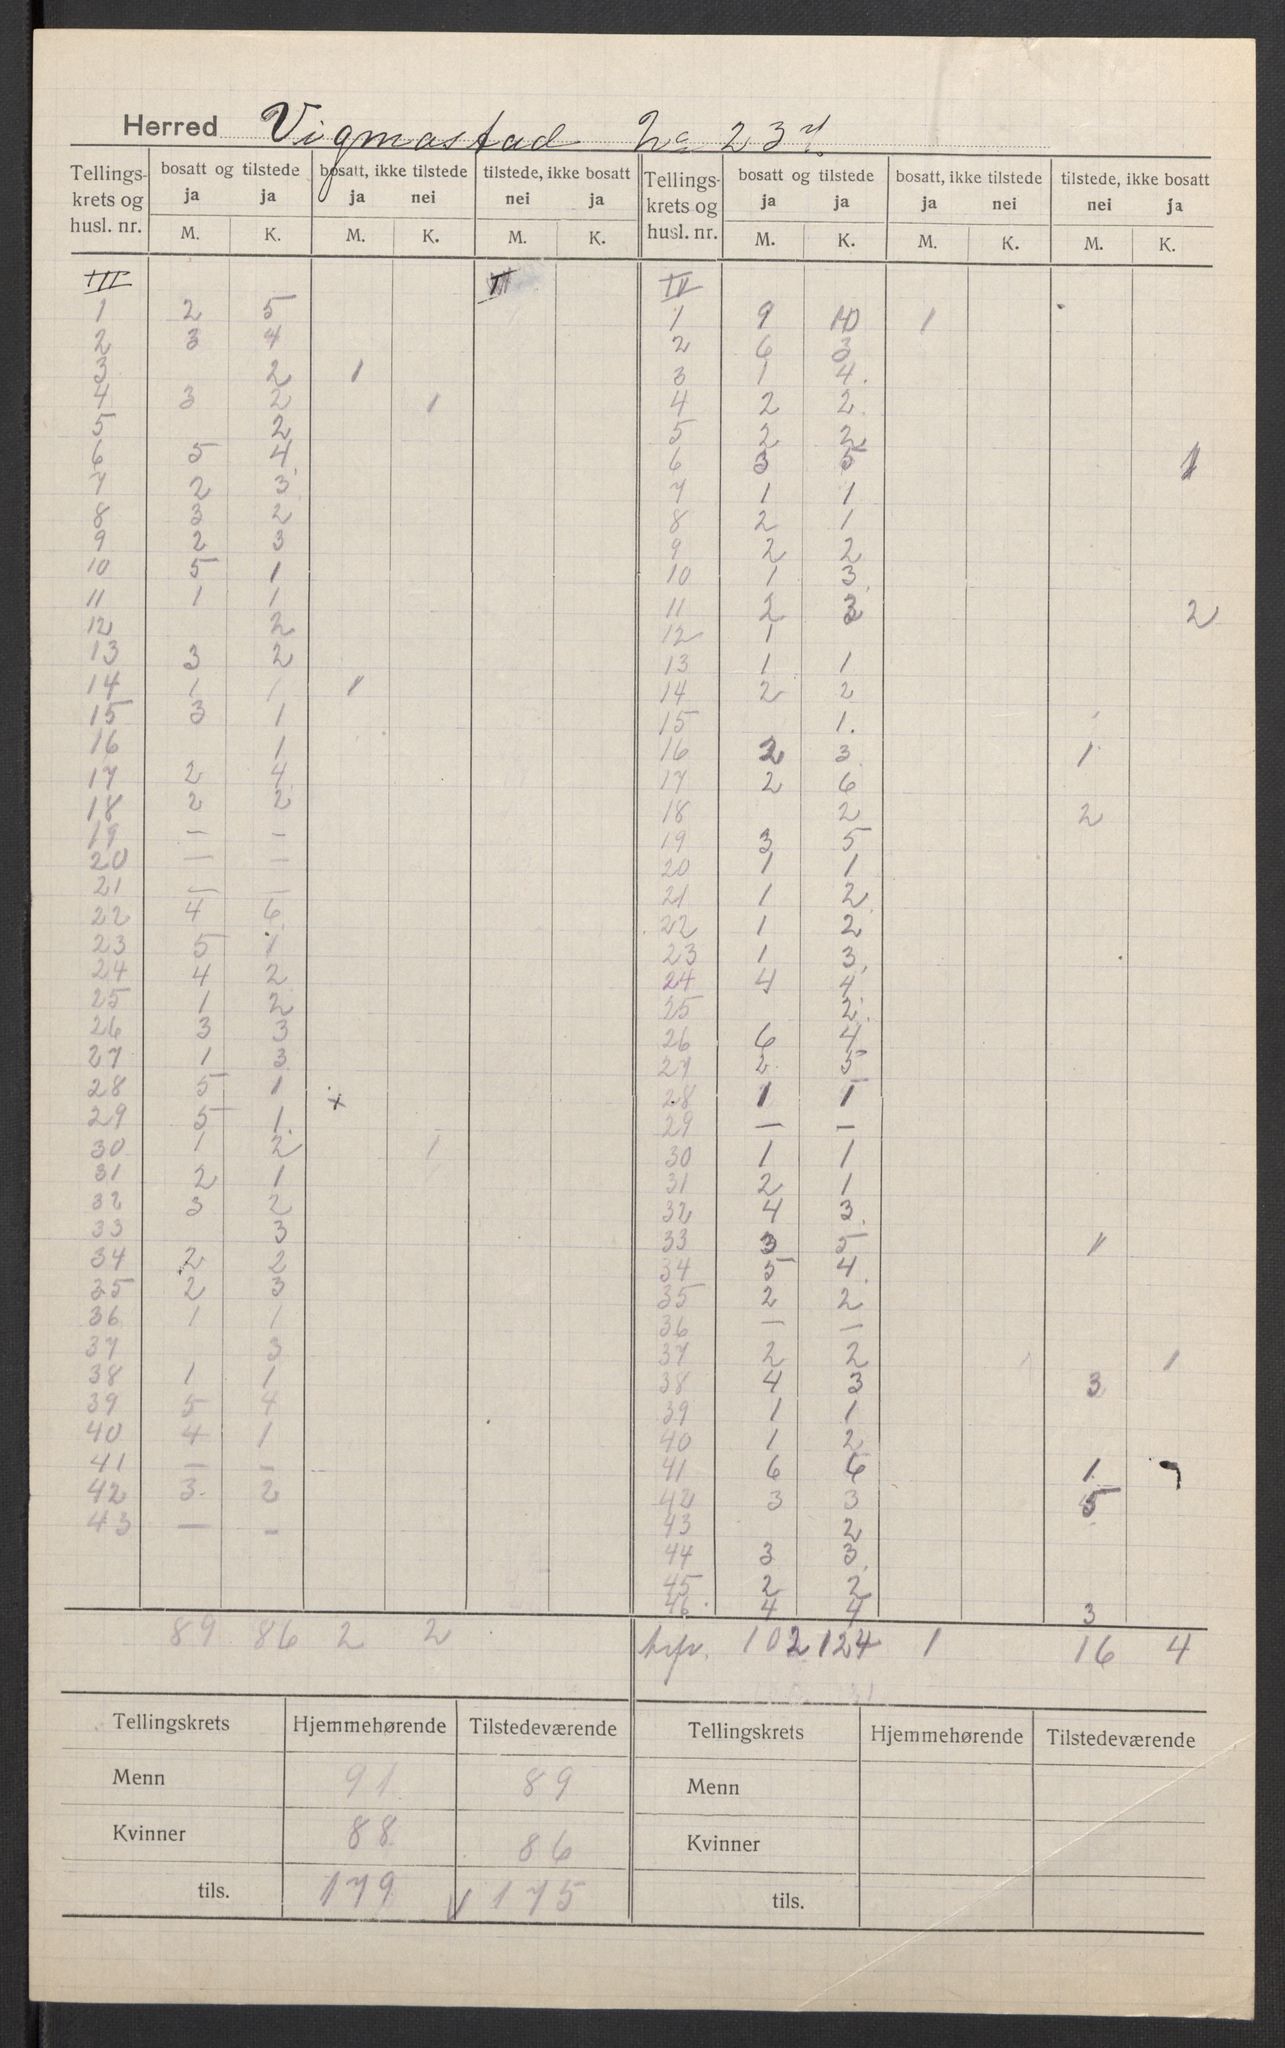 Herred Vigmostad
Tellings- krets og husl. nr. | bosatt og tilstede ja ja | bosatt, ikke tilstede ja nei | tilstede, ikke bosatt nei ja | Tellings- krets og husl. nr. | bosatt og tilstede ja ja | bosatt, ikke tilstede ja nei | tilstede, ikke bosatt nei ja
M. K. M. K. M. K. M. K. M. K. M. K.
III IV
1 2 5 1 9 10 1
2 3 4 2 6 3
3 2 1 3 1 4
4 3 2 1 4 2 2
5 2 5 2 2
6 5 4 6 3 5 1
7 2 3 7 1 1
8 3 2 8 2 1
9 2 3 9 2 2
10 5 1 10 1 3
11 1 1 11 2 3 2
12 2 12 1
13 3 2 13 1 1
14 1 1 1 14 2 2
15 3 1 15 1
16 1 16 2 3 1
17 2 4 17 2 6
18 2 2 18 2 2
19 — — 19 3 5
20 — — 20 1 1
21 — — 21 1 2
22 4 6 22 1 2
23 5 1 23 1 3
24 4 2 24 4 4
25 1 2 25 2
26 3 3 26 6 4
27 1 3 27 2 5
28 5 1 28 1 1
29 5 1 x 29 — —
30 1 2 1 30 1 1
31 2 1 31 2 1
32 3 2 32 4 3
33 3 33 3 5 1
34 2 2 34 5 4
35 2 3 35 2 2
36 1 1 36 — —
37 3 37 2 2 1
38 1 1 38 4 3 3
39 5 4 39 1 1
40 4 1 40 1 2
41 — — 41 6 6 1
42 3 2 42 3 3 5
43 — — 43 2
44 3 3
45 2 2
46 4 4 3
89 86 2 2 102 124 1 16 4
Tellingskrets Hjemmehørende Tilstedeværende Tellingskrets Hjemmehørende Tilstedeværende
Menn 91 89 Menn
Kvinner 88 86 Kvinner
tils. 179 175 tils.